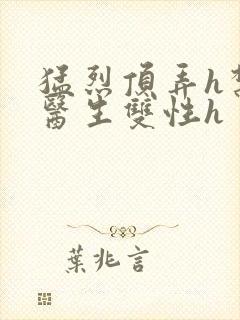 猛烈頂弄h
醫生雙性h
葉兆言